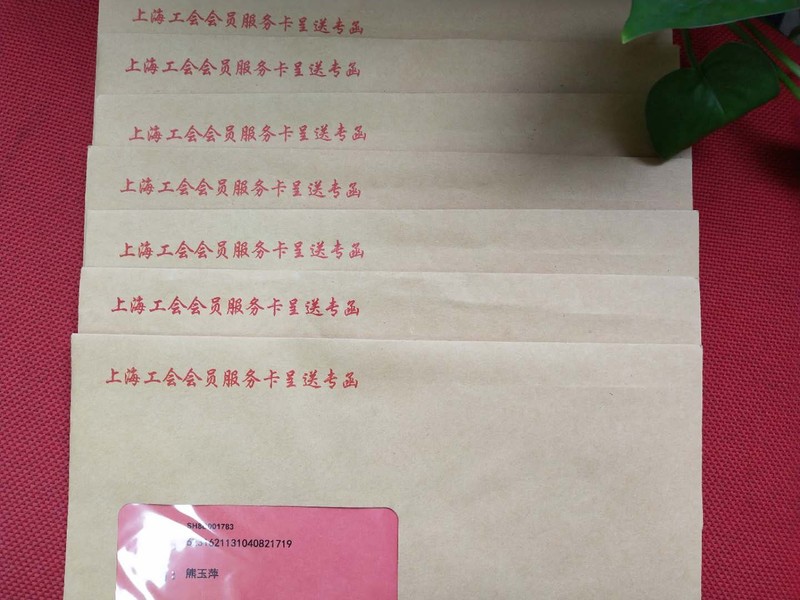 上海工会会员服务卡呈送专函
上海工会会员服务卡呈送专函
上海工会会员服务卡呈送专函
上海工会会员服务卡呈送专函
上海工会会员服务卡呈送专函
上海工会会员服务卡呈送专函
上海工会会员服务卡呈送专函
熊玉萍